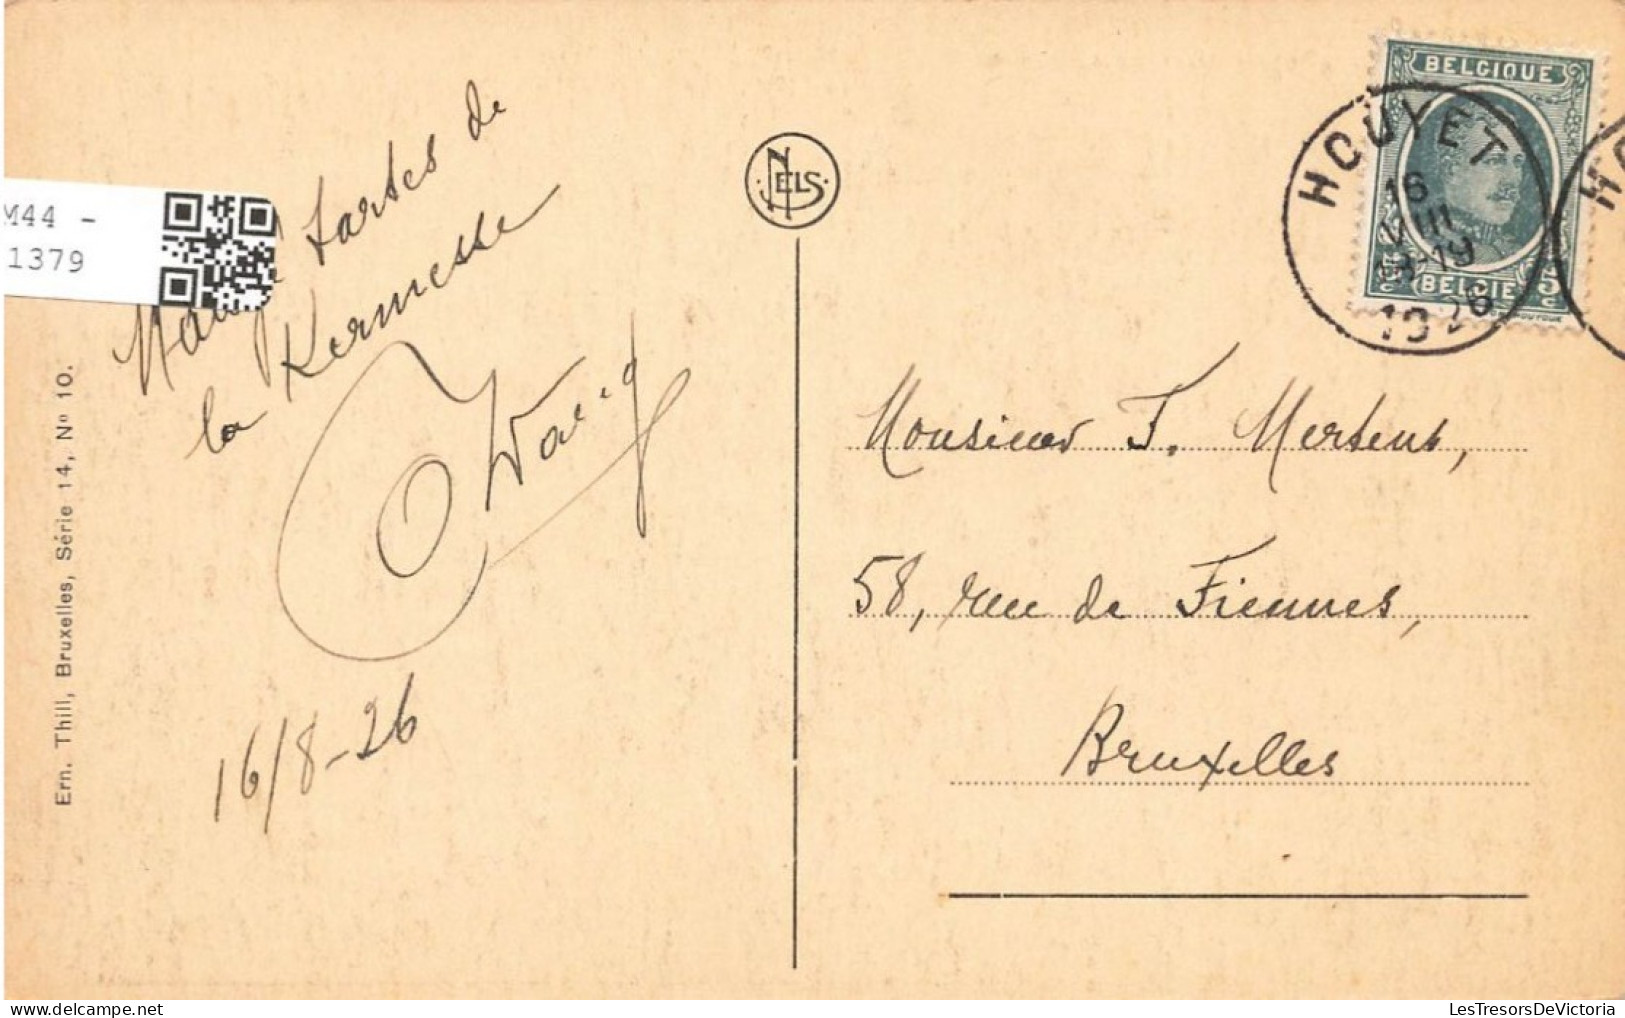 M44 -
1379
tartes de
la Kermesse
16/8-26
Ern. Thill, Bruxelles, Série 14, Nº 10.
NELS
BELGIQUE
BELGIE
5c
HOUYET
16
VIII
18-19
1926
HO
Monsieur F. Mertens,
58, rue de Fiennes,
Bruxelles
LesTresorsDeVictoria